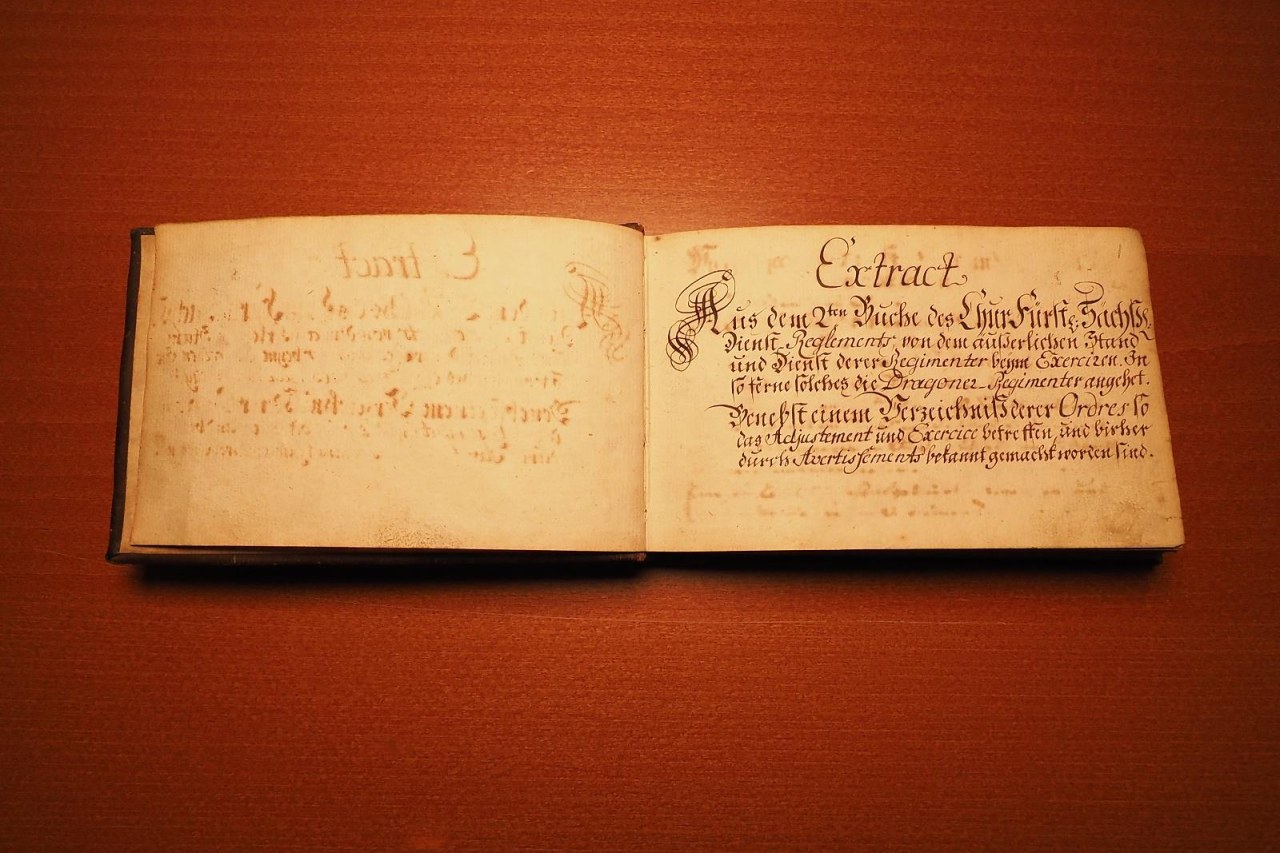 Extract
Aus dem 2ten Buche des ChurFürstl: Sächß:
Dienst-Reglements, von dem äußerlichen Stand
und Dienst derer Regimenter beym Exerciren. In
so ferne solches die Dragoner-Regimenter angehet.
Benebst einem Verzeichniß derer Ordres so
das Adjustement und Exercice betreffen, und bisher
durch Avertissements bekannt gemacht worden sind.